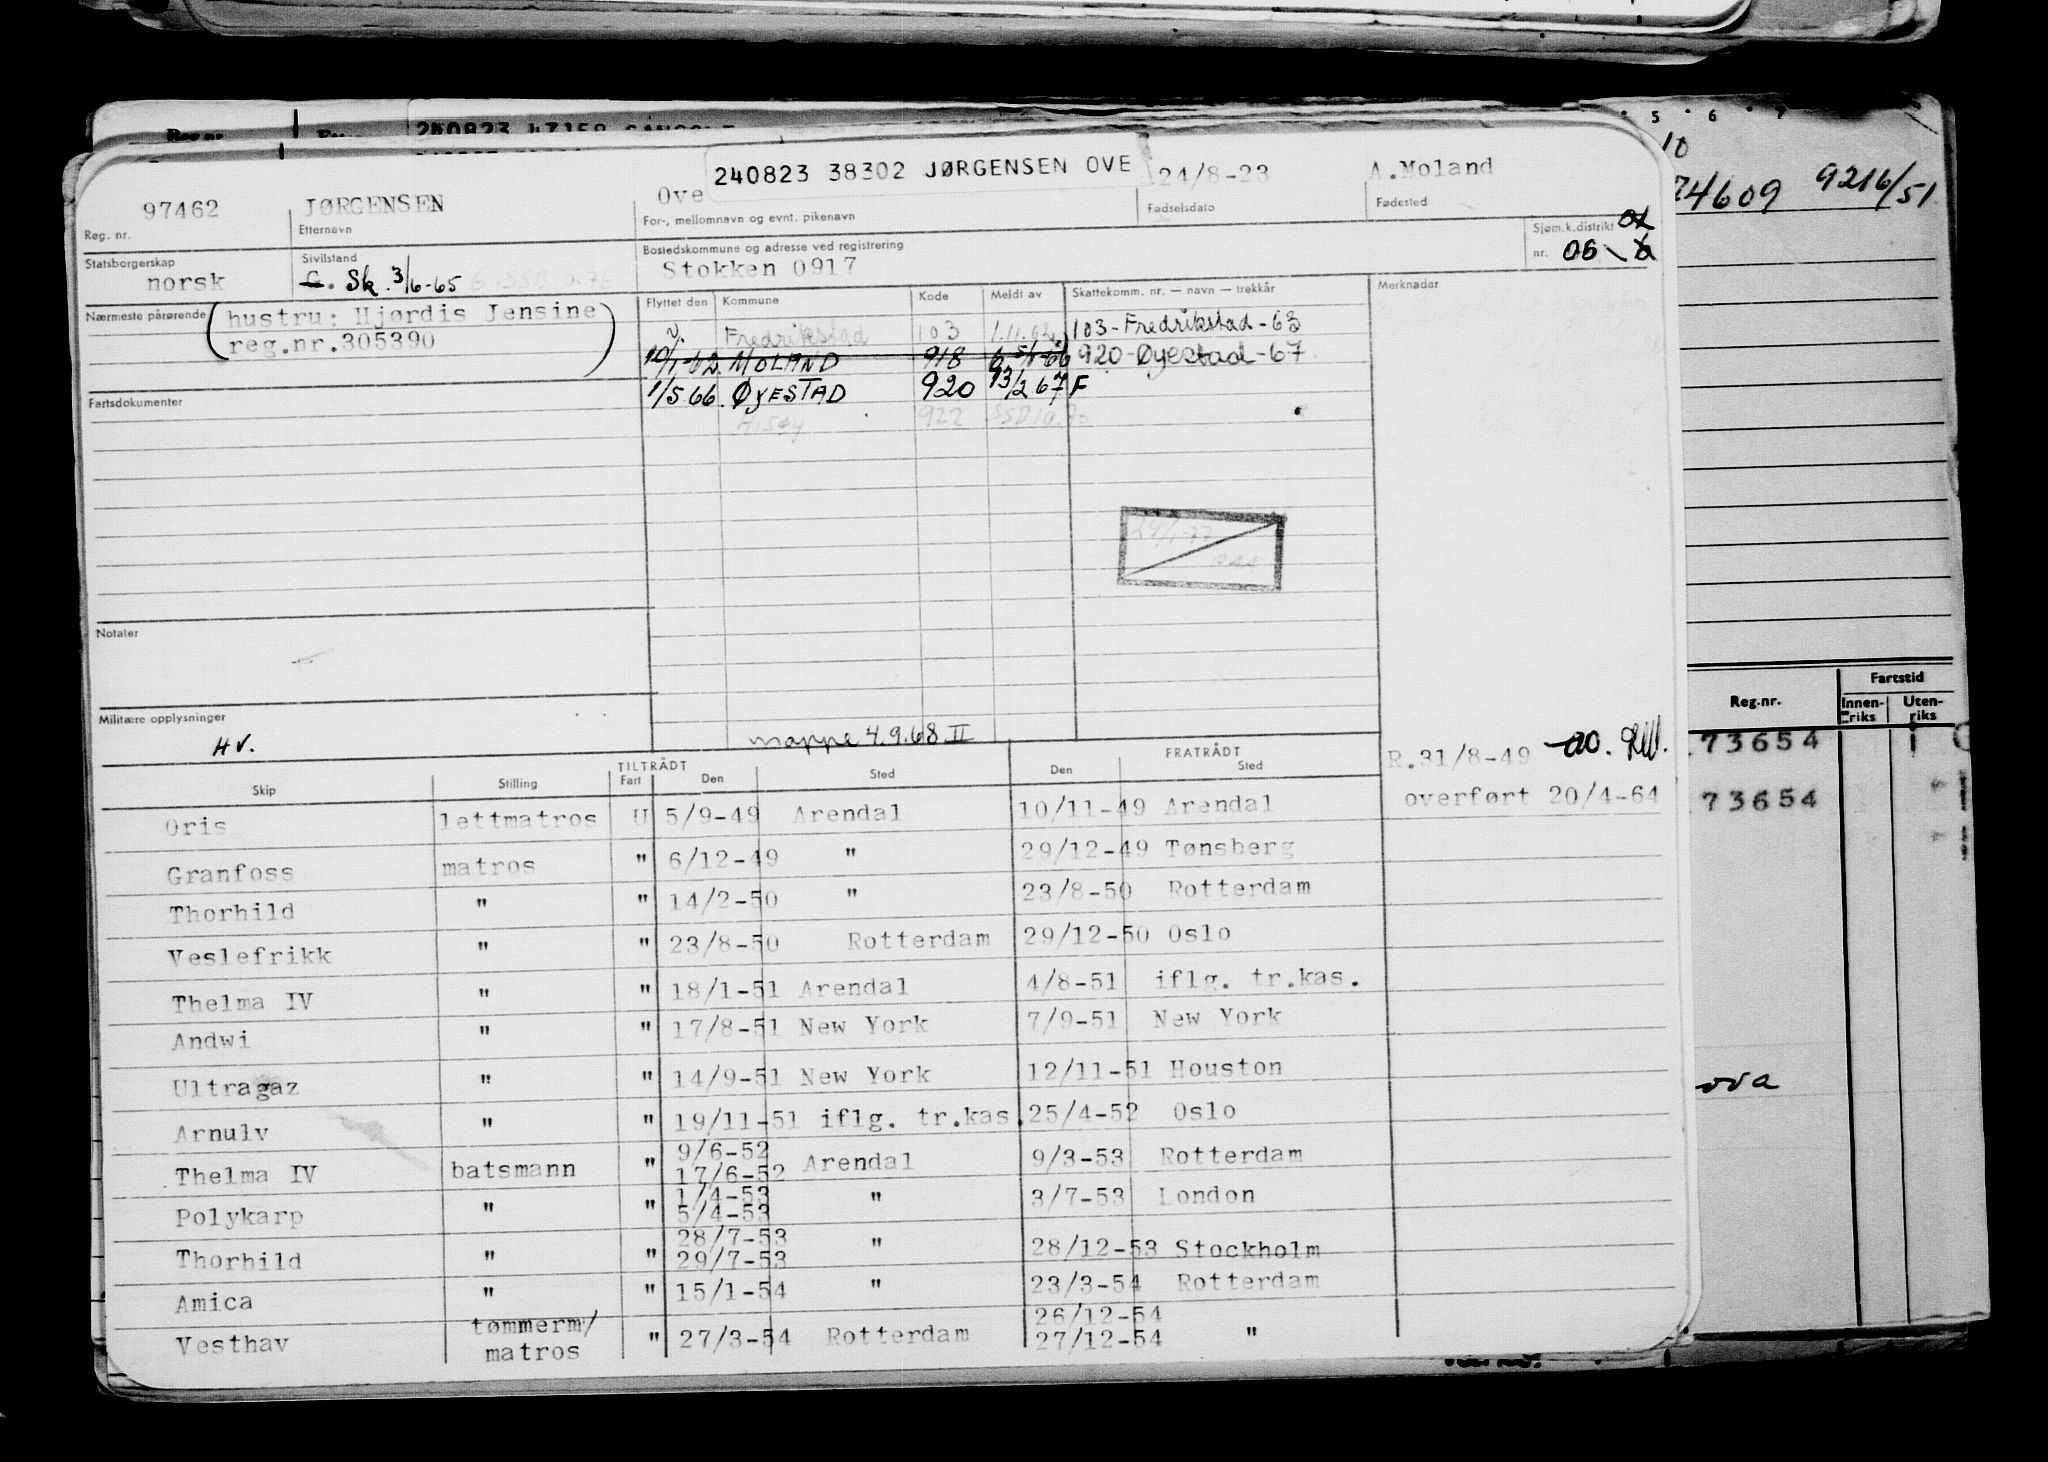 240823 38302 JØRGENSEN OVE
97462 JØRGENSEN Ove 24/8-23 A.Moland
Reg. nr. Etternavn For-, mellomnavn og evnt. pikenavn Fødselsdato Fødested
74609 9216/51
Statsborgerskap Sivilstand Bostedskommune og adresse ved registrering Sjøm.k.distrikt
norsk G. Sk. 3/6-65 Stokken 0917 nr. 06
Nærmeste pårørende Flyttet den Kommune Kode Meldt av Skattekomm. nr. — navn — trekkår Merknader
(hustru: Hjørdis Jensine
reg.nr.305390)
Fredrikstad 103 1.11.62 103-Fredrikstad-63
10/1-62 MOLAND 918 920-Øyestad-67
1/5 66 ØYESTAD 920 13/2 67 F
Hisøy 922
Fartsdokumenter
Notater
Militære opplysninger
HV.
mappe 4.9.68 II
R.31/8-49
overført 20/4-64
TILTRÅDT FRATRÅDT
Skip Stilling Fart Den Sted Den Sted
Oris lettmatros U 5/9-49 Arendal 10/11-49 Arendal
Granfoss matros " 6/12-49 " 29/12-49 Tønsberg
Thorhild " " 14/2-50 " 23/8-50 Rotterdam
Veslefrikk " " 23/8-50 Rotterdam 29/12-50 Oslo
Thelma IV " " 18/1-51 Arendal 4/8-51 iflg. tr.kas.
Andwi " " 17/8-51 New York 7/9-51 New York
Ultragaz " " 14/9-51 New York 12/11-51 Houston
Arnulv " " 19/11-51 iflg. tr.kas. 25/4-52 Oslo
9/6-52
Thelma IV batsmann " 17/6-52 Arendal 9/3-53 Rotterdam
1/4-53
Polykarp " " 5/4-53 " 3/7-53 London
28/7-53
Thorhild " " 29/7-53 " 28/12-53 Stockholm
Amica " " 15/1-54 " 23/3-54 Rotterdam
tømmerm/ 26/12-54
Vesthav matros " 27/3-54 Rotterdam 27/12-54 "
Fartstid
Reg.nr. Innenriks Utenriks
73654
73654